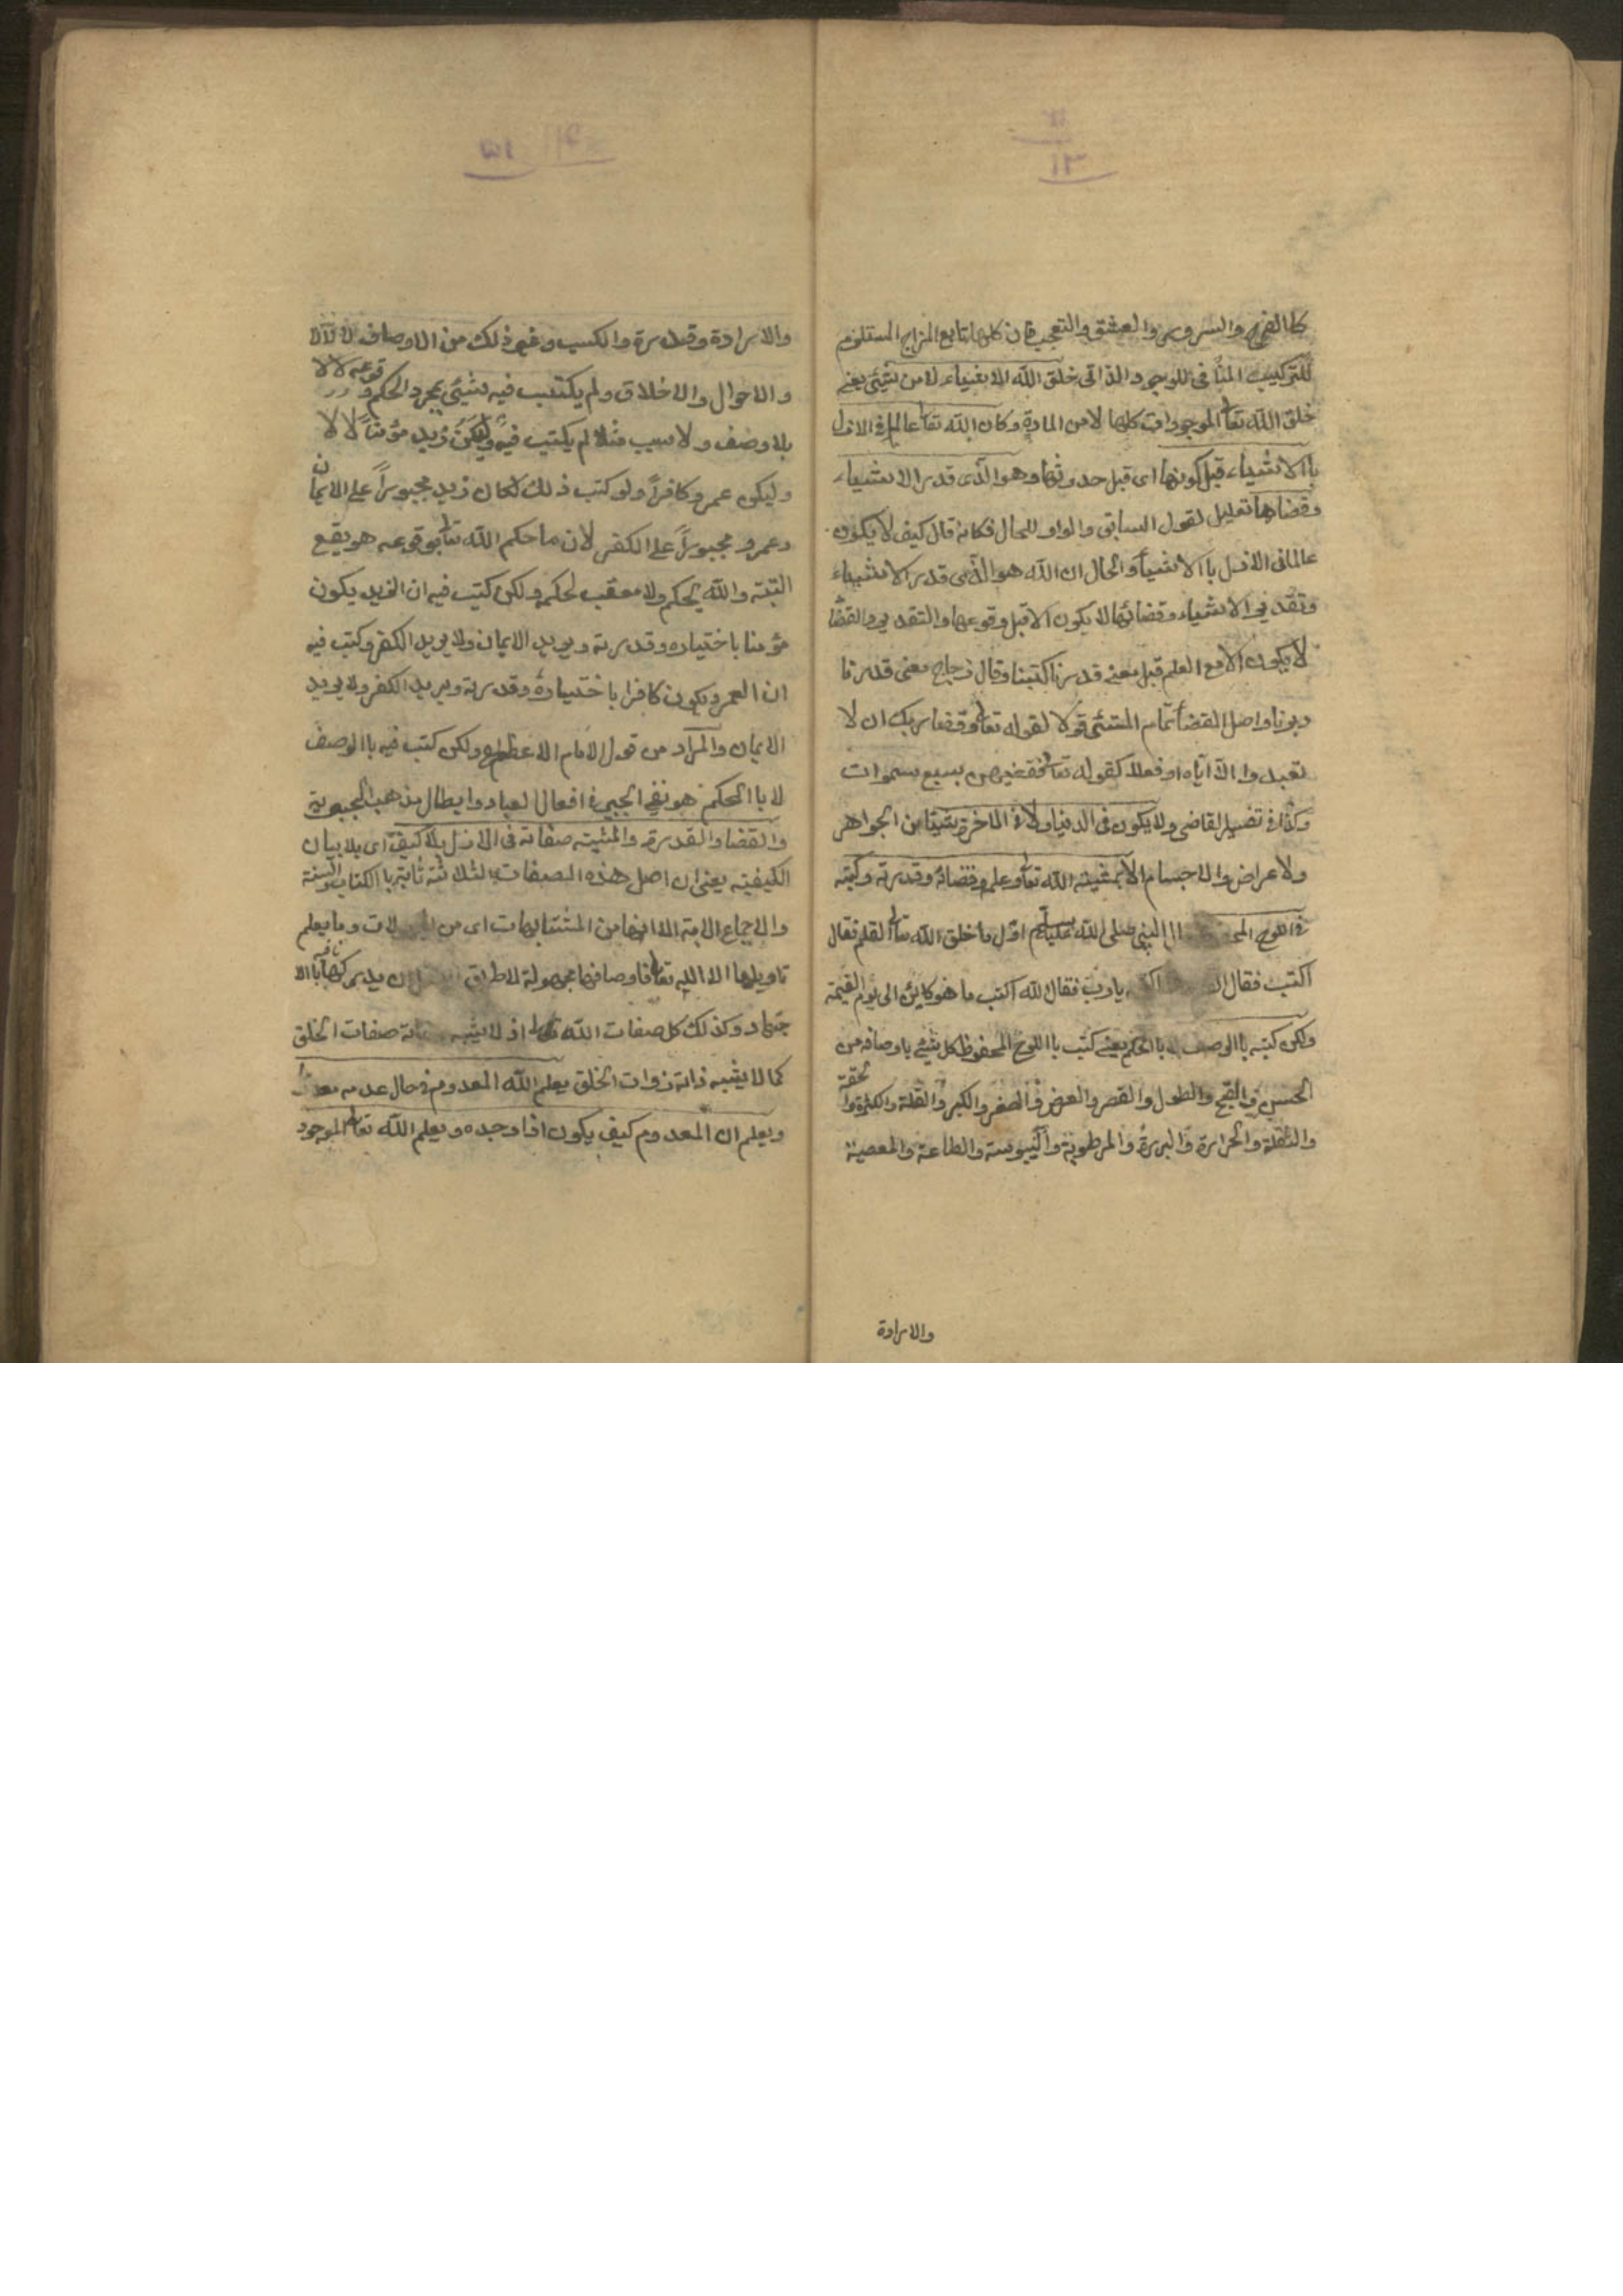 ١٣
كالفرح والسرور والعشق والتعجب فان كلها تابع المزاج المستلزم
للتركيب المنافى للوجود الذاتى خلق الله الاشياء لا من شيئ يعنى
خلق الله تعا الموجودات كلها لا من المادة وكان الله تعا عالما فى الازل
باالاشياء قبل كونها اى قبل حدوثها وهو الذى قدر الاشياء
وقضاها تعليل لقول السابق والواو للحال فكانه قال كيف لا يكون
عالما فى الازل باالاشيأ والحال ان الله هو الذى قدر الاشياء
وتقدير الاشياء وقضائها لا يكون الا قبل وقوعها والتقدير والقضأ
لا يكون الا مع العلم قبل معنى قدرنا كتبنا وقال زجاج معنى قدرنا
دبرنا واصل القضأ تمام الشئ قولا لقوله تعا وقضا ربك ان لا
تعبدوا الا اياه او فعلا كقوله تعا فقضيهن بسبع سموات
وكذا فى تفسير القاضى ولا يكون فى الدنيا ولا فى الاخرة شيئا من الجواهر
ولاعراض والاجسام الا بمشيته الله تعا وعلمه وقضائه وقدرته وكتبه
فى اللوح ال النبى صلى الله عليه وسلم اول ما خلق الله تعا القلم فقال
اكتب فقال يارب فقال الله اكتب ما هو كاين الى يوم القيمة
ولكن كتبه باالوصف لا باالحكم يعنى كتب بااللوح المحفوظ كل شئ باوصافه من
الحسن والقبح والطول والقصر والعرض والصغر والكبر والقلة والكثرة والخفة
والثقلة والحرارة والبررة والرطوبة واليبوسة والطاعة والمعصية
والارادة
والارادة وقدرة والكسب وغير ذلك من الاوصاف
والاحوال والاخلاق ولم يكتب فيه شيئ بمجرد الحكم وقوعه
بلا وصف ولا سبب مثلا لم يكتب فيه وليكن زيد مؤمنا
وليكن عمرو كافرا ولو كتب ذلك لكان زيد مجبورا على الايمان
وعمرو مجبورا على الكفر لان ما حكم الله تعا بوقوعه هو يقع
البتة والله يحكم ولا معقب لحكمه ولكن كتب فيه ان الزيد يكون
مؤمنا باختياره وقدرته ويريد الايمان ولا يريد الكفر وكتب فيه
ان العمرو يكون كافرا باختياره وقدرته ويريد الكفر ولا يريد
الايمان والمراد من قول الامام الاعظم ولكن كتب فيه باالوصف
لا باالحكم هو نفى الجبر فى افعال العباد وابطال مذهب الجبرية
والقضا والقدرة والمشية صفاته فى الازل بلا كيف اى بلا بيان
الكيفية يعنى ان اصل هذه الصفات الثلاثة ثابتة باالكتاب والسنة
والاجماع الامة الا انها من المتشابهات اى من وما يعلم
تاويلها الا الله تعا فاوصافها مجهولة لا طريق ان يدركها باالا
جتهاد وكذلك كل صفات الله تعا اذ لا يشبه صفات الخلق
كما لا يشبه ذاته ذوات الخلق يعلم الله المعدوم فى حال عدمه
ويعلم ان المعدوم كيف يكون اذا وجده ويعلم الله تعا الموجود